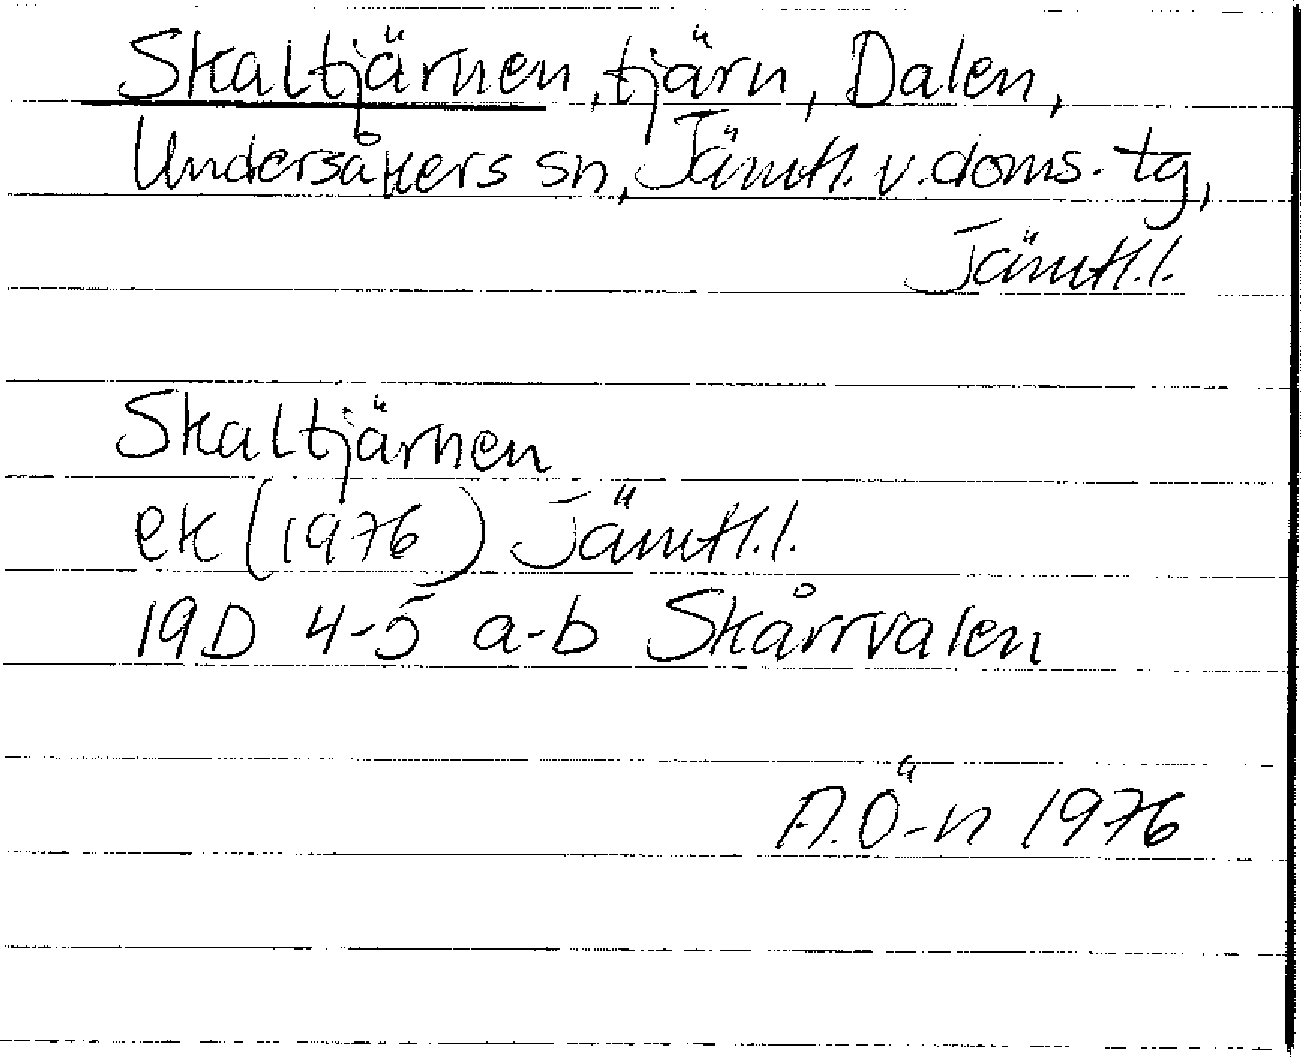 Skaltjärnen, tjärn, Dalen,
Undersåkers sn, Jämtl. v. doms. tg,
Jämtl. l.
Skaltjärnen
ek (1976) Jämtl. l.
19D 4-5 a-b Skårrvalen
A. Ö-n 1976